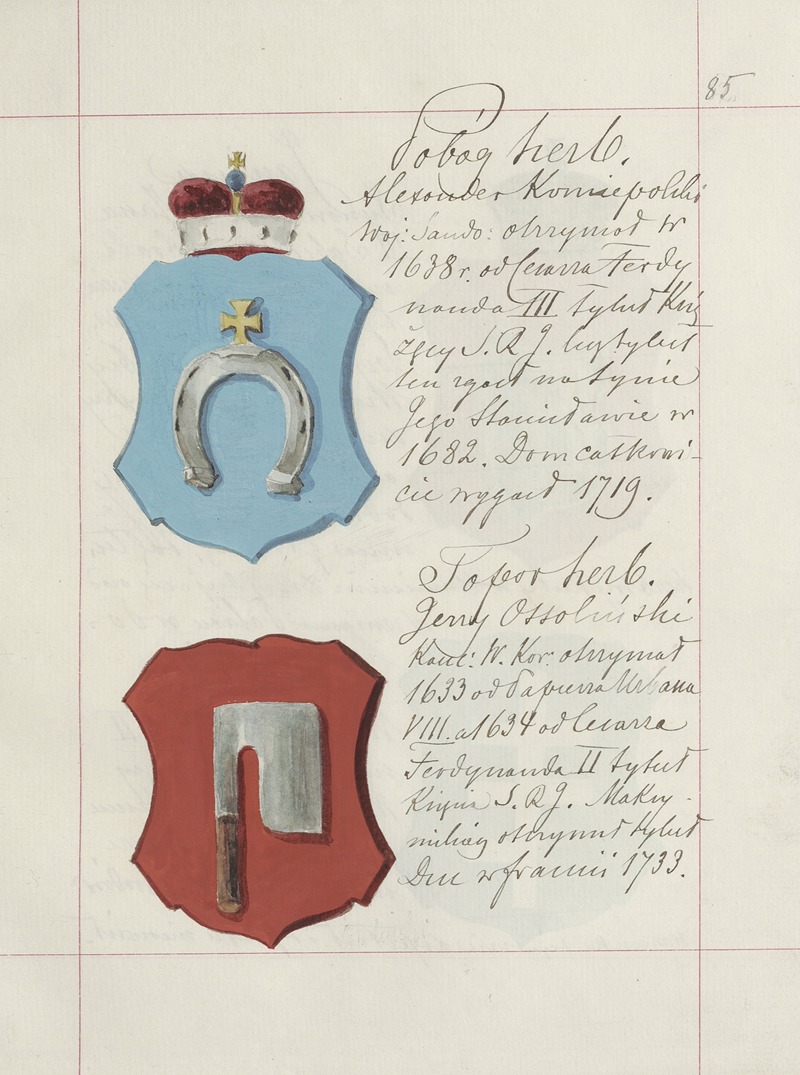 85.
Pobóg herb.
Alexander Koniepolski
Woj: Sando: otrzymał w
1638 r. od Cesarza Ferdy
nanda III tytuł Ksią
żęcy S. R. J. lecz tytuł
ten zgasł na synie
Jego Stanisławie w
1682. Dom całkowi-
cie wygasł 1719.
Topor herb.
Jerzy Ossoliński
Kanc: W. Kor: otrzymał
1633 od Papieża Urbana
VIII. a 1634 od Cesarza
Ferdynanda II tytuł
Księcia S. R. J. Maksy-
milian otrzymał tytuł
Duc w francii 1733.